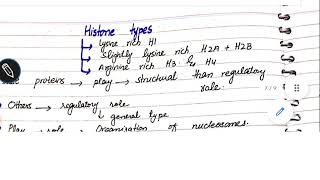 Histone types
Lysine rich H1
Slightly lysine rich H2A + H2B
Arginine rich H3 & H4
proteins → play → structural than regulatory
role.
Others → regulatory role
↓ general type
Play role → Organisation of nucleosomes.